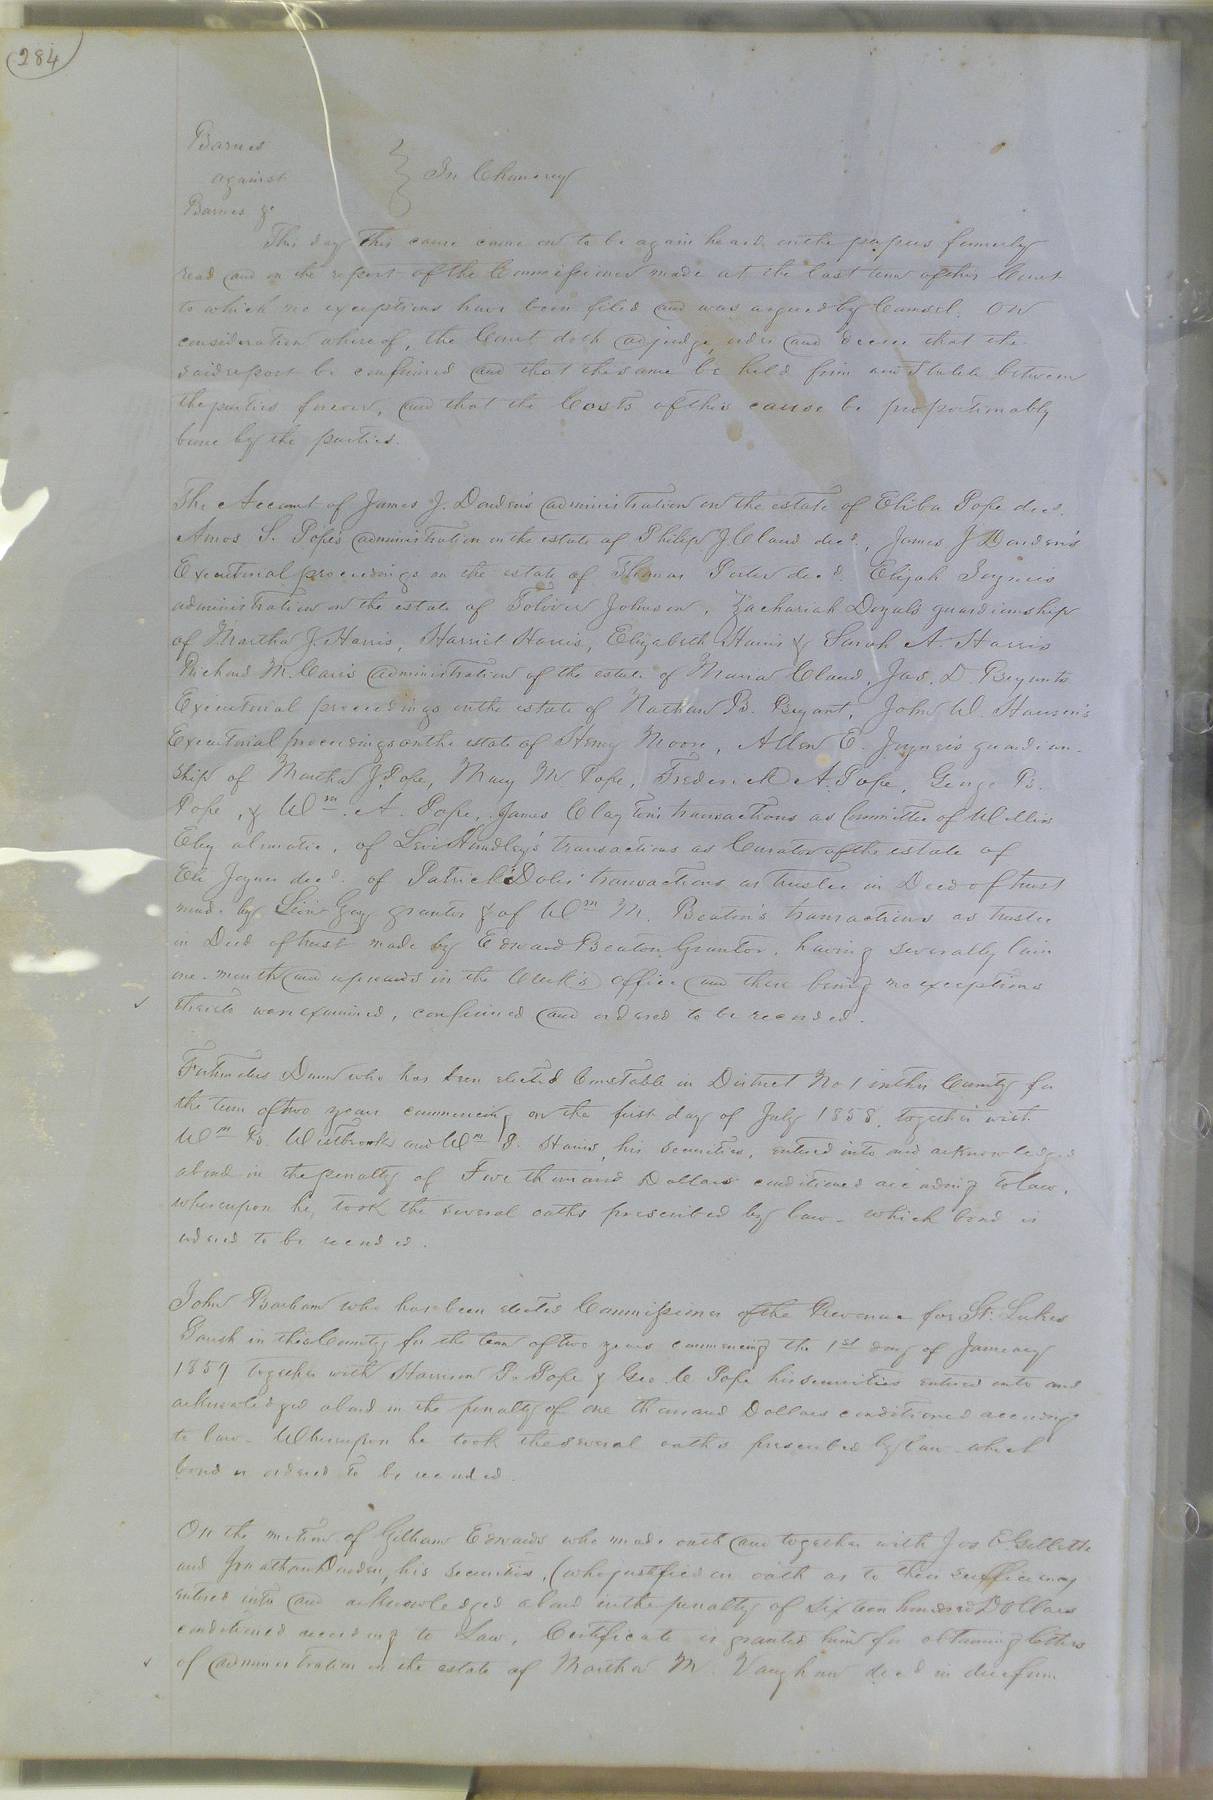 284
Barnes
against } In Chancery
Barnes &c
This day this cause came on to be again heard on the papers formerly
read and on the report of the Commissioner made at the last term of this Court
to which no exceptions have been filed and was argued by Counsel. On
consideration whereof, the Court doth adjudge, order and decree that the
said report be confirmed and that the same be held firm and stable between
the parties forever, and that the Costs of this cause be proportionably
borne by the parties.
The Account of James J. Darden's administration on the estate of Eliba Pope decd.
Amos S. Pope's administration on the estate of Philip J Claud decd., James J Darden's
Executorial proceedings on the estate of Thomas Porter decd. Elijah Joyner's
administration on the estate of Toliver Johnson, Zachariah Doyal's guardianship
of Martha J. Harris, Harriet Harris, Elizabeth Harris & Sarah A. Harris
Richard M. Carr's administration of the estate of Maria Claud, Jas. D. Bryant's
Executorial proceedings on the estate of Nathan B. Bryant, John W. Hansen's
Executorial proceedings on the estate of Henry Moore, Allen E. Joyner's guardian-
ship of Martha J. Pope, Mary M. Pope, Frederick A. Pope, George B.
Pope, & Wm. A. Pope, James Clayton's transactions as Committee of Willis
Eley a lunatic, of Levi Hundley's transactions as Curator of the estate of
Eli Joyner decd. of Patrick Doles' transactions as trustee in Deed of trust
made by Gay grantor & of Wm M. Beaton's transactions as trustee
in Deed of trust made by Edward Beaton Grantor, having severally lain
one month and upwards in the Clerk's office and there being no exceptions
thereto were examined, confirmed and ordered to be recorded.
Fortunatus Dunn who has been elected Constable in District No 1 in this County for
the term of two years commencing on the first day of July 1858, together with
Wm B. Westbrook and Wm J. Harris, his securities, entered into and acknowledged
a bond in the penalty of Five thousand Dollars conditioned according to law,
whereupon he, took the several oaths prescribed by law - which bond is
ordered to be recorded.
John Barham who has been elected Commissioner of the Revenue for St. Lukes
Parish in this County for the term of two years commencing the 1st day of January
1859 together with Harrison P. Pope & Geo. C Pope his securities entered into and
acknowledged a bond in the penalty of one thousand Dollars conditioned according
to law - Whereupon he took the several oaths prescribed by law - which
bond is ordered to be recorded.
On the motion of Gilliam Edwards who made oath and together with Jos E Gillette
and Jonathan Darden, his securities, (who justified on oath as to their sufficiency
entered into and acknowledged a bond in the penalty of Sixteen hundred Dollars
conditioned according to Law, Certificate is granted him for obtaining letters
of administration on the estate of Martha M. Vaughan decd in due form